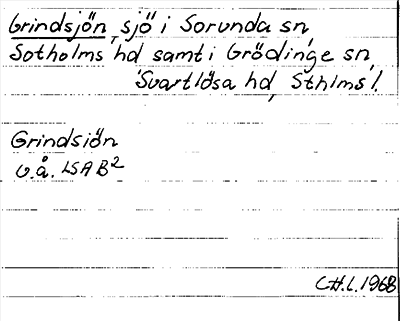 Grindsjön, sjö i Sorunda sn,
Sotholms hd samt i Grödinge sn,
Svartlösa hd, Sthlms l.
Grindsiön
u.å. LSA B2
C.H.L. 1968